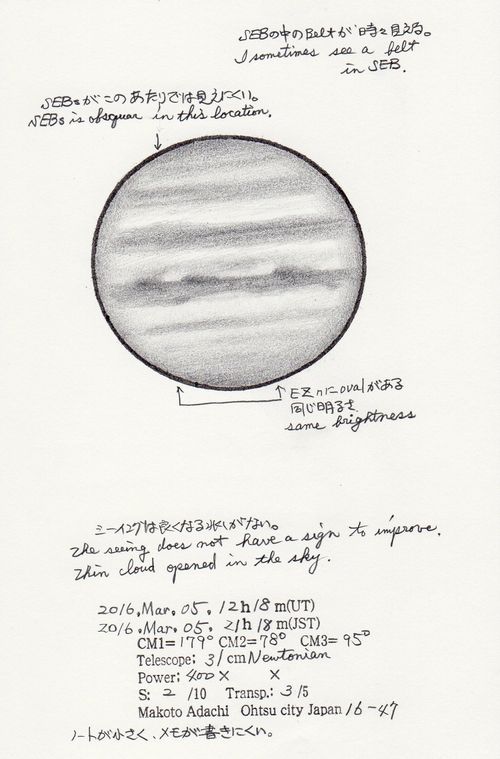 SEBの中のBeltが時々見える。
I sometimes see a belt
in SEB.
SEBsがこのあたりでは見えにくい。
SEBs is obsquar in this location.
EZnにovalがある
同じ明るさ
same brightness
シーイングは良くなる兆しがない。
The seeing does not have a sign to improve.
Thin cloud opened in the sky.
2016. Mar. 05. 12h 18 m(UT)
2016. Mar. 05. 21h 18 m(JST)
CM1= 179° CM2= 78° CM3= 95°
Telescope: 31 cm Newtonian
Power: 400 × ×
S: 2 /10 Transp.: 3 /5
Makoto Adachi Ohtsu city Japan 16-47
ノートが小さく、メモが書きにくい。